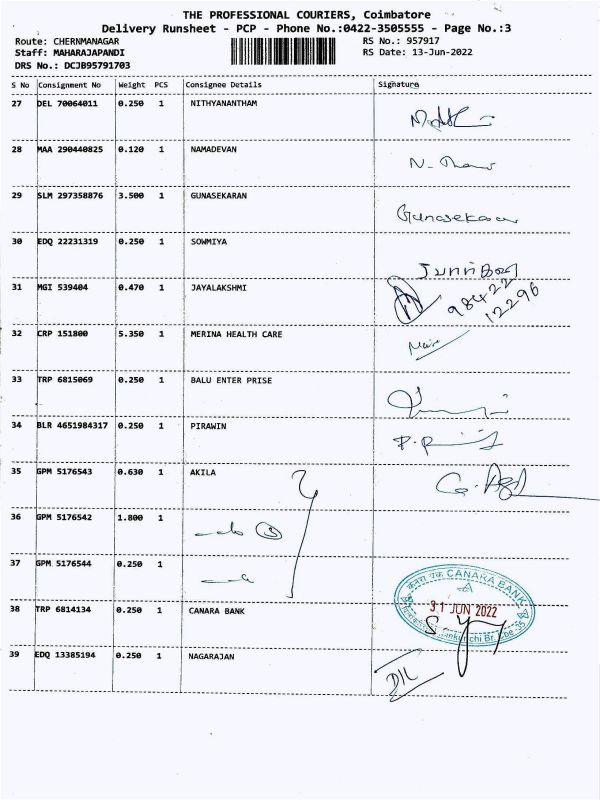 THE PROFESSIONAL COURIERS, Coimbatore
Delivery Runsheet - PCP - Phone No.:0422-3505555 - Page No.:3
Route: CHERNMANAGAR RS No.: 957917
Staff: MAHARAJAPANDI RS Date: 13-Jun-2022
DRS No.: DCJB95791703
S No Consignment No Weight PCS Consignee Details Signature
27 DEL 70064011 0.250 1 NITHYANANTHAM
28 MAA 290440825 0.120 1 NAMADEVAN
29 SLM 297358876 3.500 1 GUNASEKARAN Gunasekaran
30 EDQ 22231319 0.250 1 SOWMIYA
31 MGI 539404 0.470 1 JAYALAKSHMI 98422
12296
32 CRP 151800 5.350 1 MERINA HEALTH CARE
33 TRP 6815069 0.250 1 BALU ENTER PRISE
34 BLR 4651984317 0.250 1 PIRAWIN
35 GPM 5176543 0.630 1 AKILA
36 GPM 5176542 1.800 1 3
37 GPM 5176544 0.250 1
CANARA BANK
38 TRP 6814134 0.250 1 CANARA BANK 31 JUN 2022
39 EDQ 13385194 0.250 1 NAGARAJAN